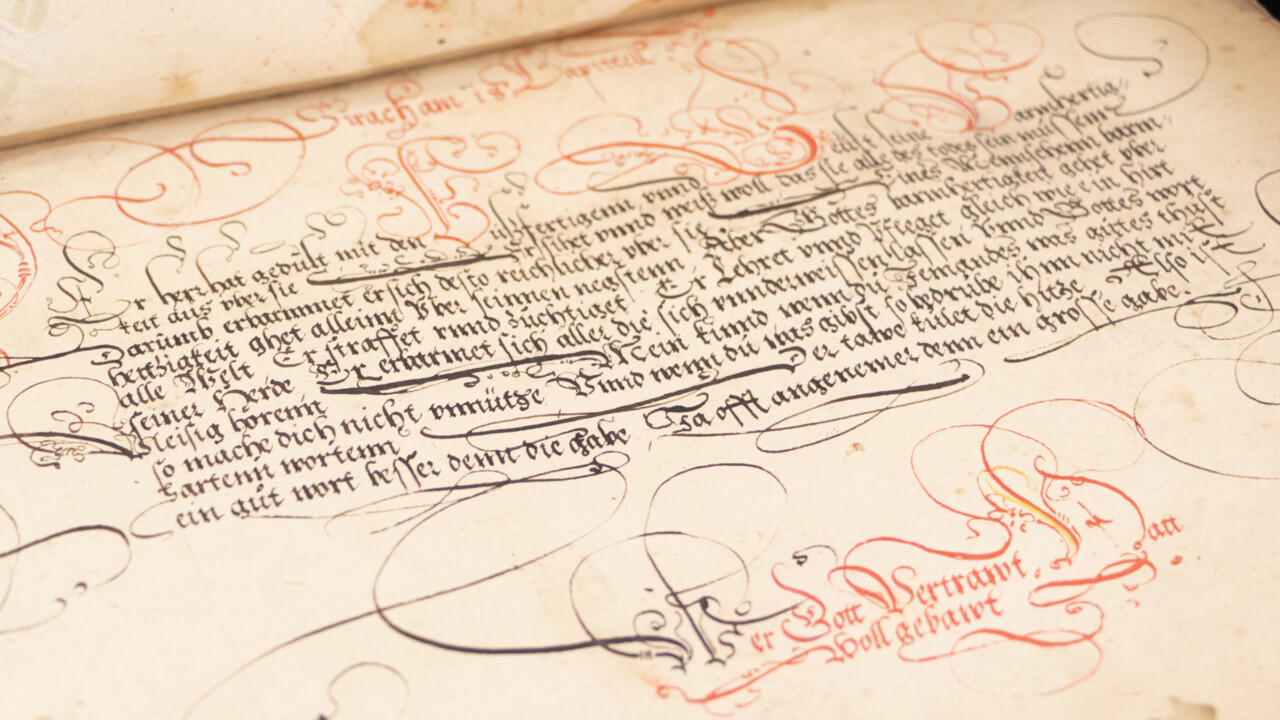 Sirach am 18 Capittell
Er herr hat gedult mit den unnd seine armhertig-
keit aus vber sie sihet vnnd weiß woll das sie alle des todes sein müssenn
Darumb erbarmet er sich desto reichlicher vber sie Eines Mennschenn barm-
hertzigkeit ghet alleine Vber seinnen negstenn Aber Gottes barmhertigkeit gehet vber
alle Welt Er straffet vnnd züchtiget Er Lehret vnnd pfleget gleich wie ein hirt
seiner Herde Er erbarmet sich aller die sich vnnderweissen lassen Vnnd Gottes wort
vleisig hörenn Mein kinnd wenn du Jemandes was guttes thust
so mache dich nicht vnnütze Vnnd wenn du was gibst so bedrübe ihnn nicht mit
hartenn wortenn Der tawe kület die hitze Also ist
ein gut wort besser dennt die gabe Ja offt angenemer denn ein grosse gabe
Wer Gott Vertrawt Hatt
Woll gebawt